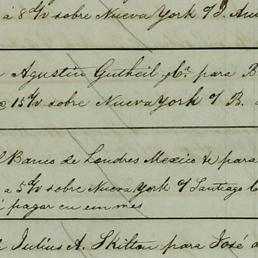 á 8 d/v sobre Nueva York c/ J. Au
Agustin Gutheil y Ca. para B
15 d/v sobre Nueva York c/ B.
l Banco de Londres Mexico & para
a 5 d/v sobre Nueva York c/ Santiago C
pagar en un mes
Julius A. Skilton para José a